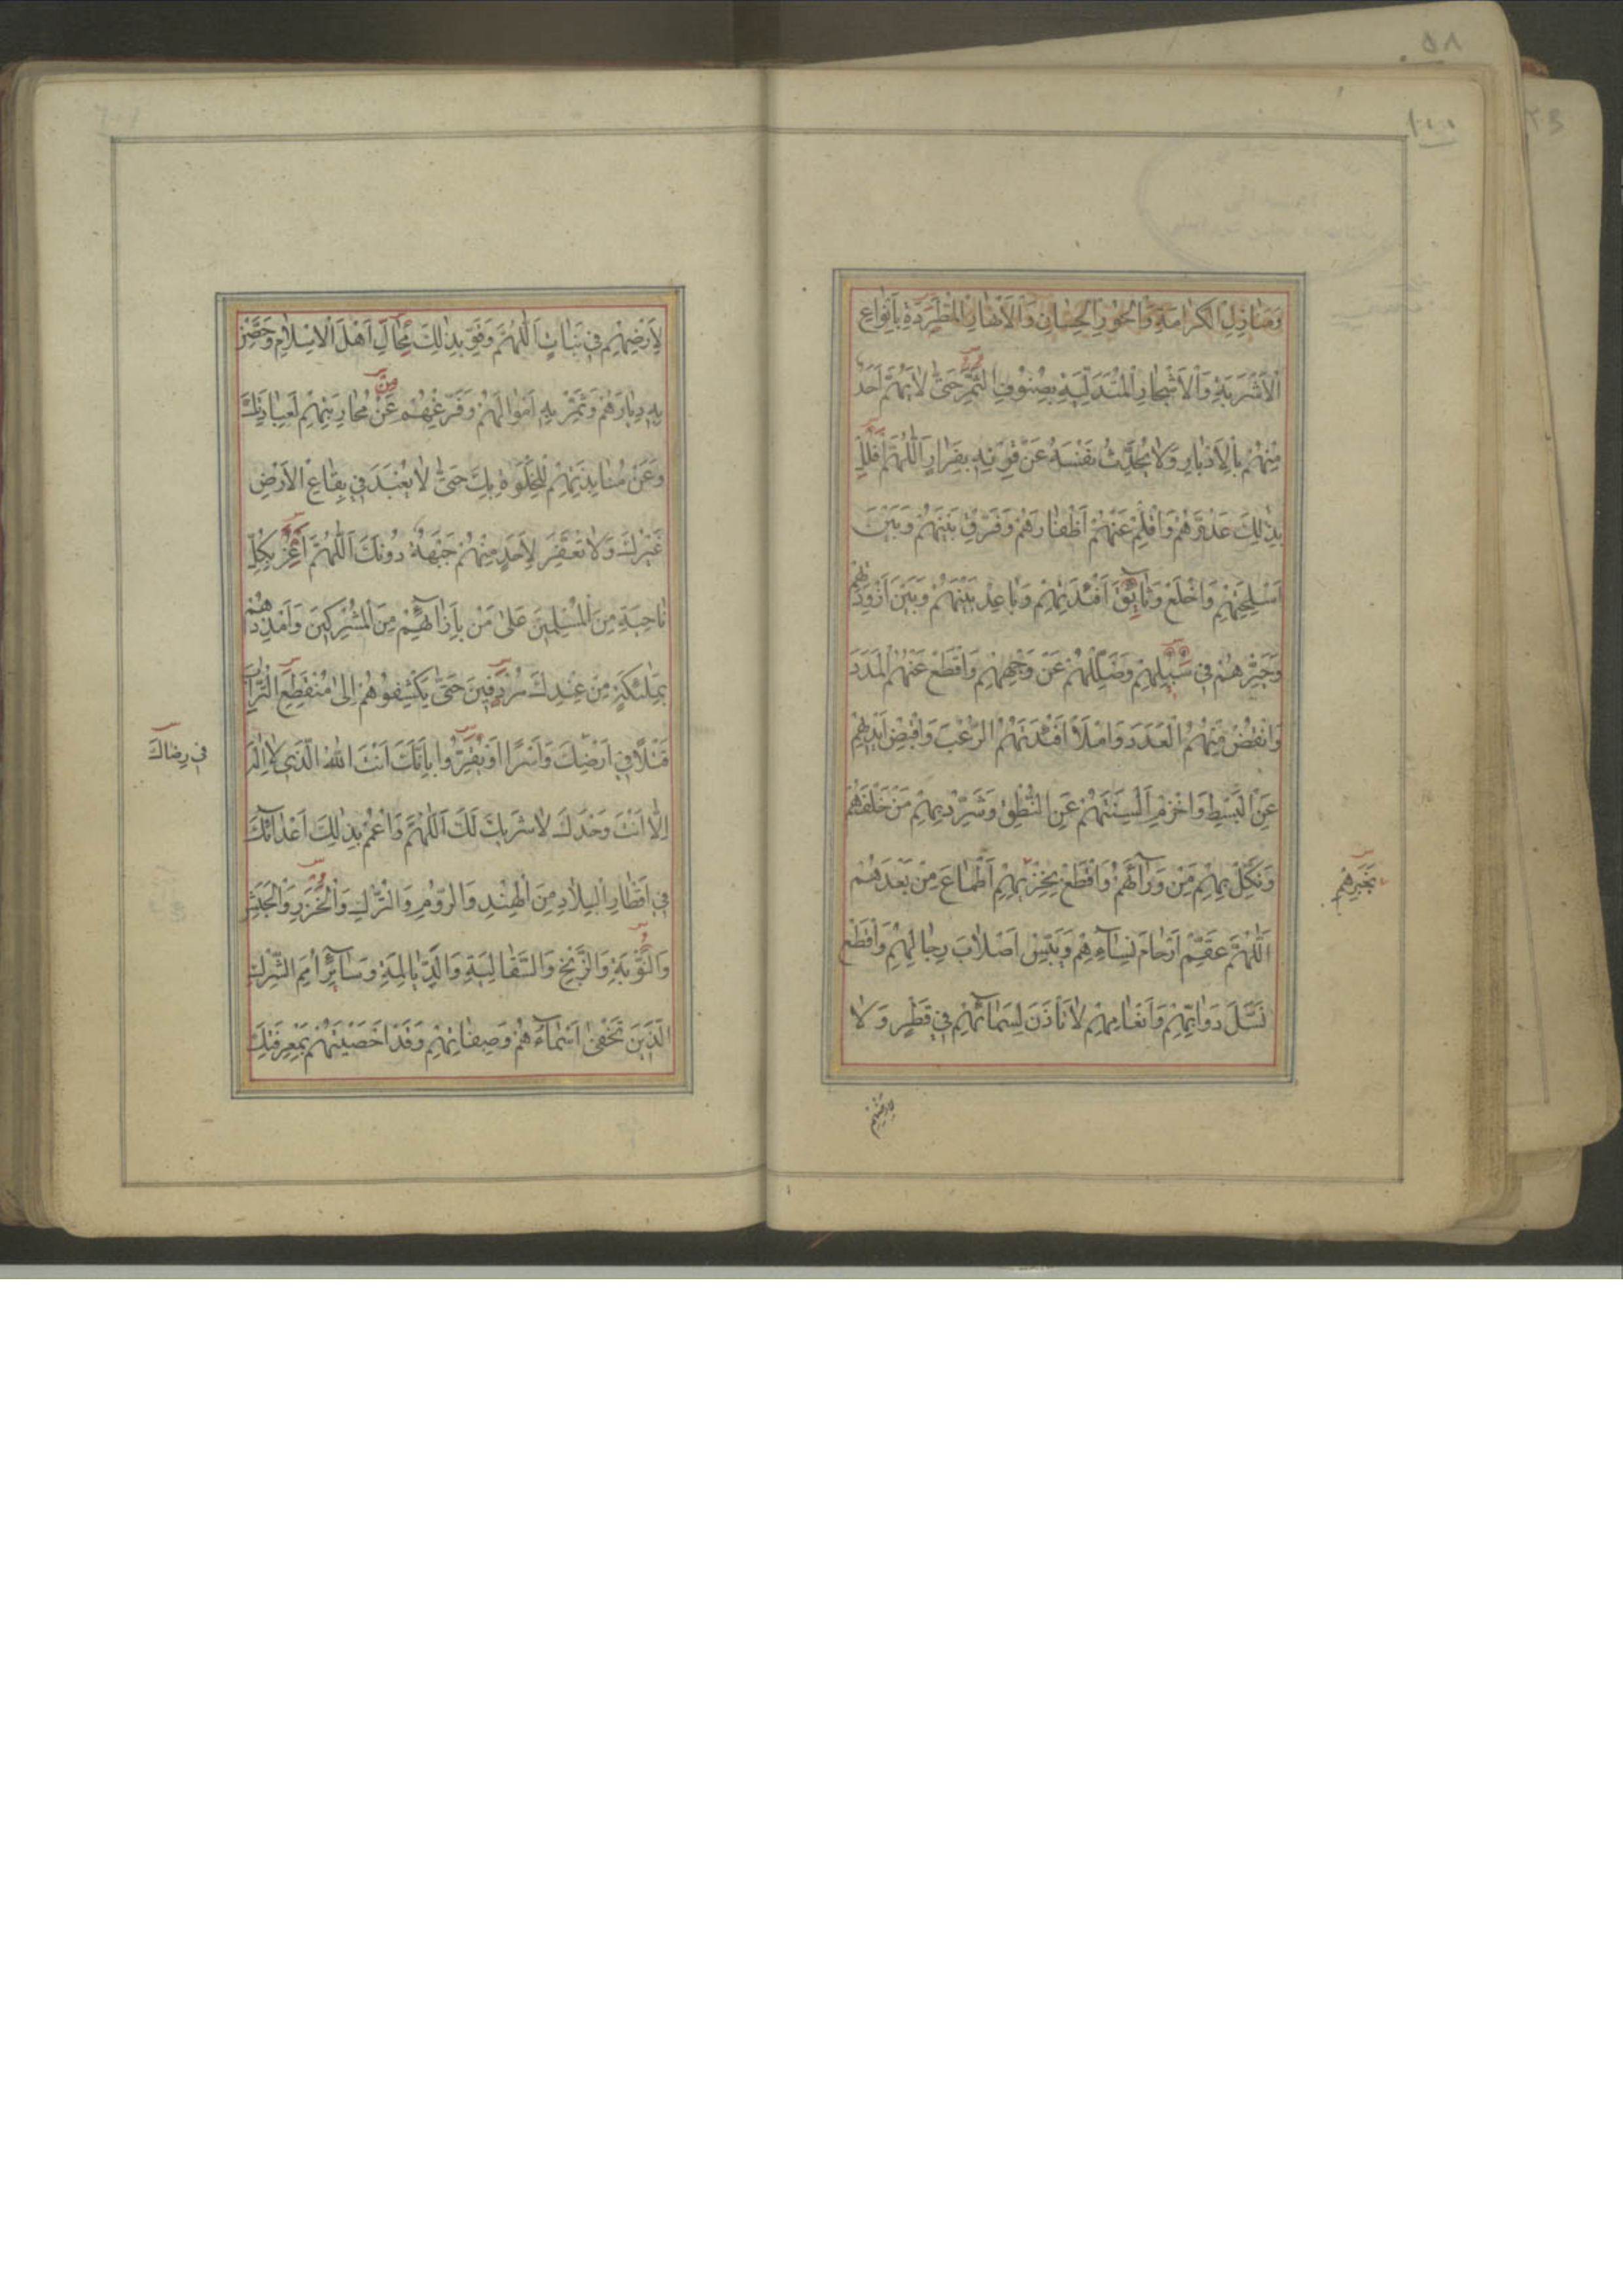 وَمَنَازِلِ الْكَرَامَةِ وَالْحُورِ الْحِسَانِ وَالْأَنْهَارِ الْمُطَّرِدَةِ بِأَنْوَاعِ
الْأَشْرِبَةِ وَالْأَشْجَارِ الْمُتَدَلِّيَةِ بِصُنُوفِ الثَّمَرِ حَتَّى لَا يَهُمَّ أَحَدٌ
مِنْهُمْ بِالْأَدْبَارِ وَلَا يُحَدِّثَ نَفْسَهُ عَنْ قِرْنِهِ بِفِرَارٍ اَللّٰهُمَّ افْلُلْ
بِذٰلِكَ عَدُوَّهُمْ وَاقْلِمْ عَنْهُمْ أَظْفَارَهُمْ وَفَرِّقْ بَيْنَهُمْ وَبَيْنَ
أَسْلِحَتِهِمْ وَاخْلَعْ وَثَائِقَ أَفْئِدَتِهِمْ وَبَاعِدْ بَيْنَهُمْ وَبَيْنَ أَزْوِدَتِهِمْ
وَحَيِّرْهُمْ فِي سُبُلِهِمْ وَضَلِّلْهُمْ عَنْ وَجْهِهِمْ وَاقْطَعْ عَنْهُمُ الْمَدَدَ
وَانْقُصْ مِنْهُمُ الْعَدَدَ وَامْلَأْ أَفْئِدَتَهُمُ الرُّعْبَ وَاقْبِضْ أَيْدِيَهُمْ
عَنِ الْبَسْطِ وَاخْزِمْ أَلْسِنَتَهُمْ عَنِ النُّطْقِ وَشَرِّدْ بِهِمْ مَنْ خَلْفَهُمْ
وَنَكِّلْ بِهِمْ مَنْ وَرَاءَهُمْ وَاقْطَعْ بِخِزْيِهِمْ أَطْمَاعَ مَنْ بَعْدَهُمْ
اَللّٰهُمَّ عَقِّمْ أَرْحَامَ نِسَائِهِمْ وَيَبِّسْ أَصْلَابَ رِجَالِهِمْ وَاقْطَعْ
نَسْلَ دَوَابِّهِمْ وَأَنْعَامِهِمْ لَا تَأْذَنْ لِسَمَائِهِمْ فِي قَطْرٍ وَلَا
لِأَرْضِهِمْ
لِأَرْضِهِمْ فِي نَبَاتٍ اَللّٰهُمَّ وَقَوِّ بِذٰلِكَ مِحَالَّ أَهْلِ الْإِسْلَامِ وَحَصِّنْ
بِهِ دِيَارَهُمْ وَثَمِّرْ بِهِ أَمْوَالَهُمْ وَفَرِّغْهُمْ عَنْ مُحَارَبَتِهِمْ لِعِبَادَتِكَ
وَعَنْ مُنَابَذَتِهِمْ لِلْخَلْوَةِ بِكَ حَتَّى لَا يُعْبَدَ فِي بِقَاعِ الْأَرْضِ
غَيْرُكَ وَلَا تُعَفَّرَ لِأَحَدٍ مِنْهُمْ جَبْهَةٌ دُونَكَ اَللّٰهُمَّ اغْزُ بِكُلِّ
نَاحِيَةٍ مِنَ الْمُسْلِمِينَ عَلَى مَنْ بِإِزَائِهِمْ مِنَ الْمُشْرِكِينَ وَأَمْدِدْهُمْ
بِمَلٰئِكَةٍ مِنْ عِنْدِكَ مُرْدِفِينَ حَتَّى يَكْشِفُوهُمْ إِلَى مُنْقَطَعِ التُّرَابِ
قَتْلًا فِي أَرْضِكَ وَأَسْرًا أَوْ يُقِرُّوا بِأَنَّكَ أَنْتَ اللّٰهُ الَّذِي لَا إِلٰهَ
فِي رِضَاكَ
إِلَّا أَنْتَ وَحْدَكَ لَا شَرِيكَ لَكَ اَللّٰهُمَّ وَاعْمُمْ بِذٰلِكَ أَعْدَائَكَ
فِي أَقْطَارِ الْبِلَادِ مِنَ الْهِنْدِ وَالرُّومِ وَالتُّرْكِ وَالْخَزَرِ وَالْحَبَشِ
وَالنُّوبَةِ وَالزَّنْجِ وَالسَّقَالِبَةِ وَالدَّيَالِمَةِ وَسَائِرِ أُمَمِ الشِّرْكِ
الَّذِينَ تَخْفَى أَسْمَاءُهُمْ وَصِفَاتُهُمْ وَقَدْ أَحْصَيْتَهُمْ بِمَعْرِفَتِكَ